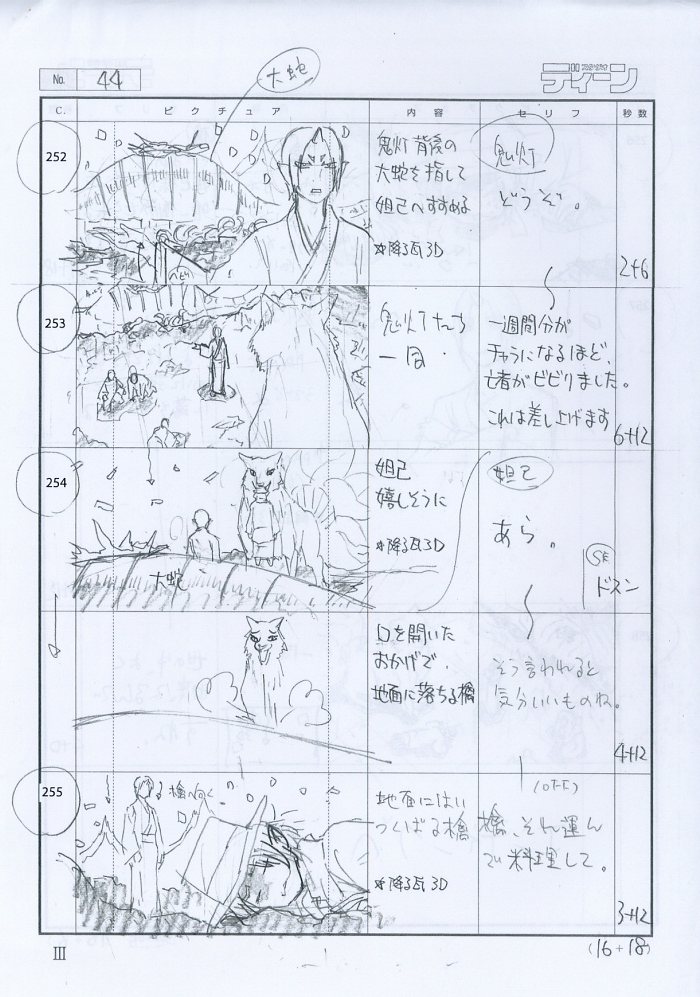 No. 44
大蛇
スタジオ
ディーン
C. ピクチュア 内容 セリフ 秒数
252
鬼灯 背後の
大蛇を指して
妲己へすすめる
※降る瓦3D
鬼灯
どうぞ。
2+6
253
鬼灯たち
一同
一週間分が
チャラになるほど、
亡者がビビりました。
これは差し上げます
6+12
254
大蛇
妲己
嬉しそうに
※降る瓦3D
妲己
あら。
SE
ドスン
口を開いた
おかげで、
地面に落ちる檎
そう言われると
気分いいものね。
4+12
255
檎へ向く
地面にはい
つくばる檎
※降る瓦3D
(OFF)
檎、それ運ん
で料理して。
3+12
(16+18)
III